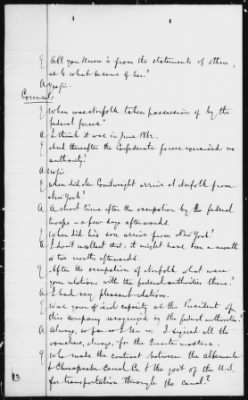 Q All you know is from the statements of others,
as to what became of her?
A Yes.
Counsel:
Q When was Norfolk taken possession of by the
federal forces?
A I think it was in June 1862.
Q And thereafter the Confederate forces exercised no
authority?
A No.
Q When did Mr. arrive at Norfolk from
New York?
A A short time after the occupation by the federal
troops - a few days afterwards.
Q When did his son arrive from New York?
A I don't recollect that; it might have been a month
or two months afterwards.
Q After the occupation of Norfolk what were
your relations with the federal authorities there?
A I had very pleasant relations.
Q Was your official capacity as the President of
this company recognized by the federal authorities?
A Always, so far as I know. I signed all the
vouchers, always, for the Quarter masters.
Q Who made the contract between the Albemarle
& Chesapeake Canal Co. & the govt of the U.S.
for transportation through the canal?